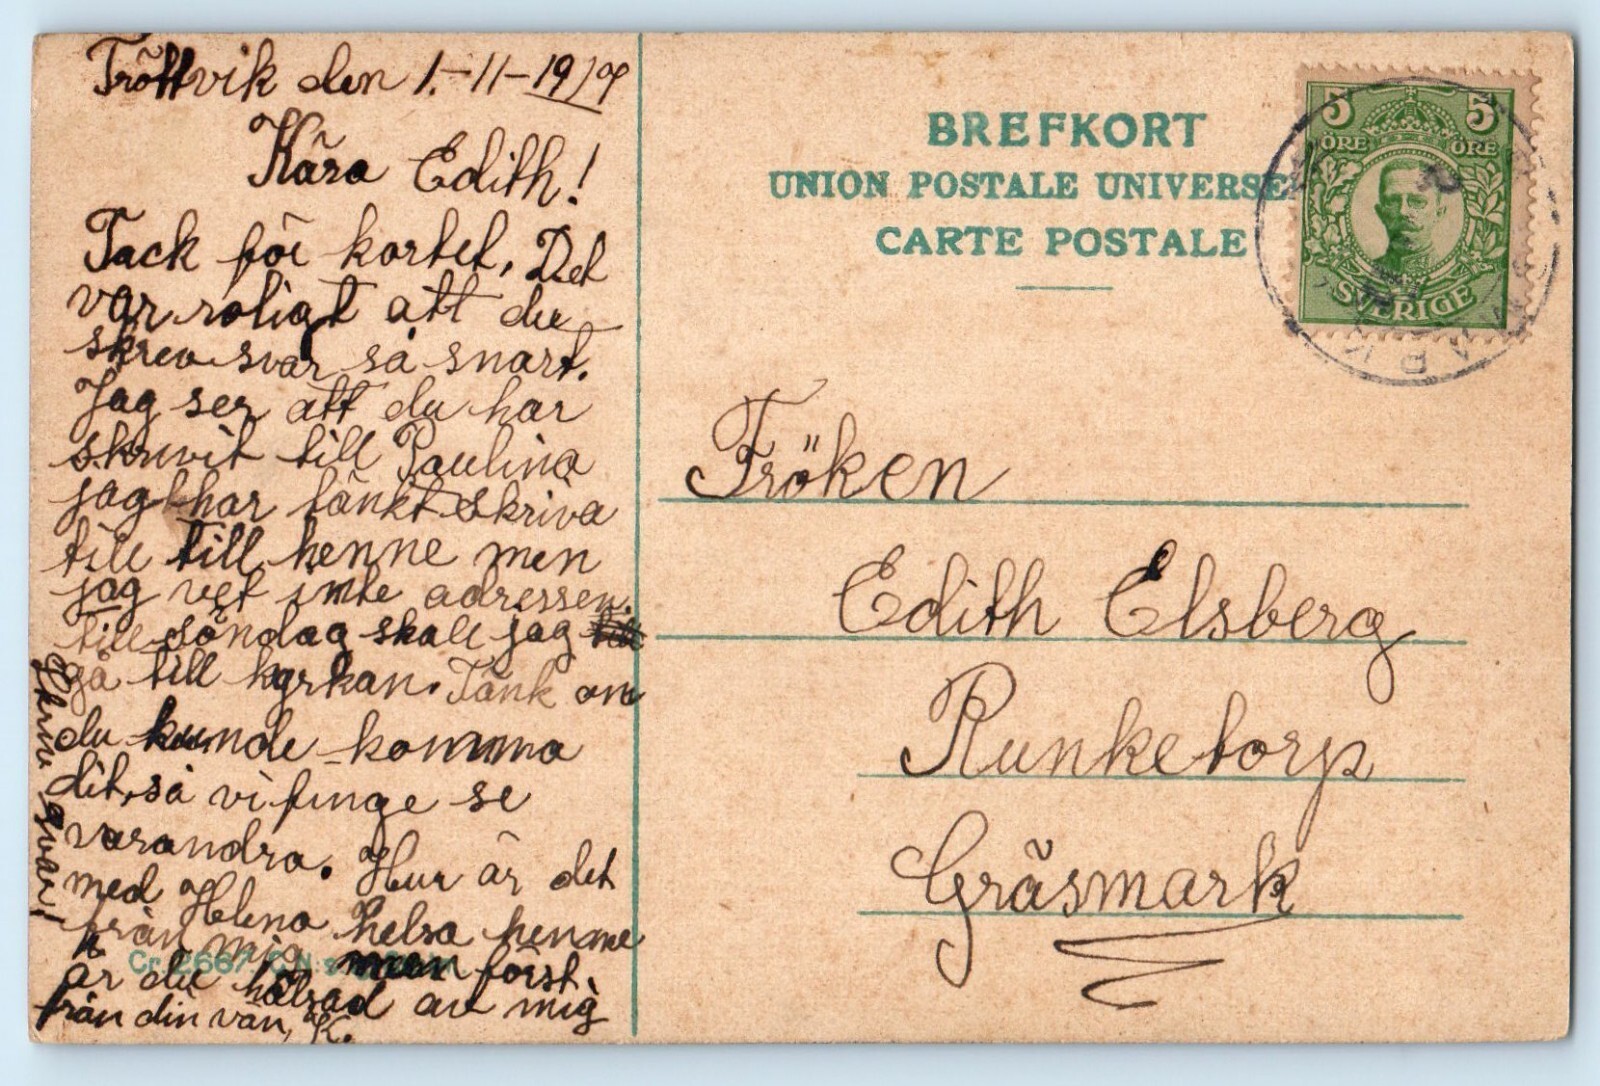 Tröttvik den 1.-11-1919
Kära Edith!
Tack för kortet, Det
var roligt att du
skrev svar så snart.
Jag ser att du har
skrivit till Paulina
jag har tänkt skriva
till till henne men
jag vet inte adressen.
till söndag skall jag
gå till kyrkan. Tänk om
du kunde komma
dit, så vi finge se
varandra. Hur är det
med Helena helsa henne
från mig men först
är du hälsad av mig
från din vän, K.
Skriv svar!
Cr. 2667 C.N:s
BREFKORT
UNION POSTALE UNIVERSE
CARTE POSTALE
5 5
ÖRE ÖRE
SVERIGE
Fröken
Edith Elsberg
Runketorp
Gräsmark